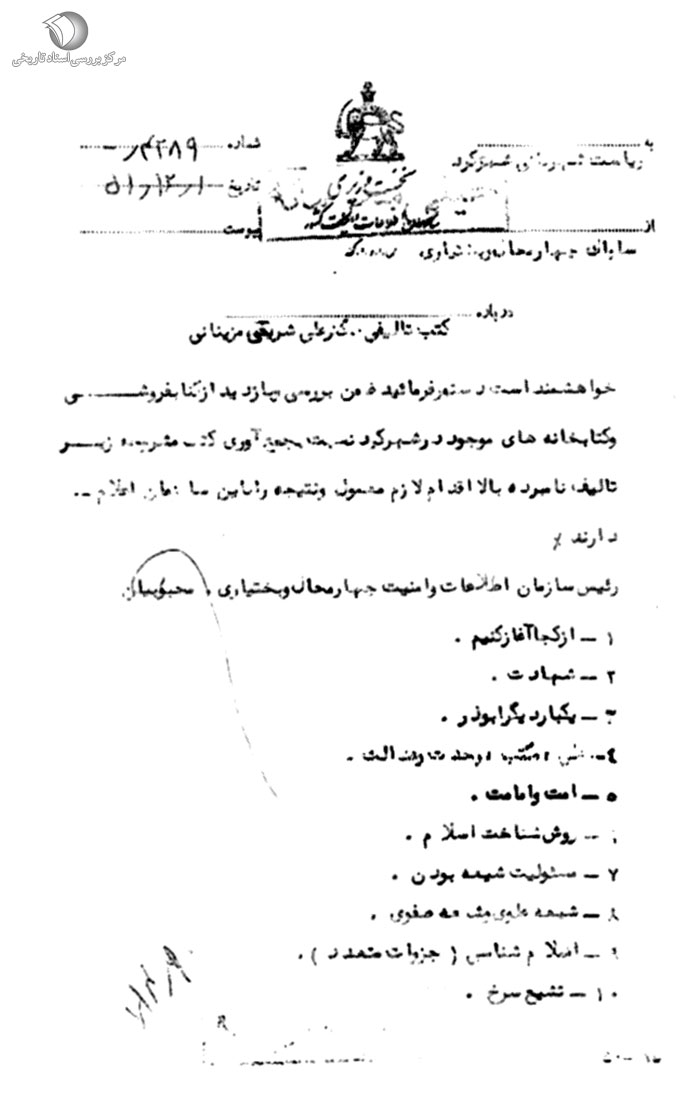 مرکز بررسی اسناد تاریخی
به
ریاست شهربانی شهرکرد
شماره ۴۳۸۹/
نخست وزیری
تاریخ ۵۱/۱۲/۱
سازمان اطلاعات و امنیت کشور
از
پیوست
ساواک چهارمحال وبختیاری
درباره
کتب تالیفی دکترعلی شریعتی مزینانی
خواهشمند است دستورفرمائید ضمن بررسی وبازدید ازکتابفروشی
وکتابخانه های موجود درشهرکرد نسبت بجمع آوری کتب مشروحه زیر
تالیف نامبرده بالا اقدام لازم معمول ونتیجه رابه این سازمان اعلام
دارند
رئیس سازمان اطلاعات وامنیت چهارمحال وبختیاری . محبوبیان
۱ – ازکجاآغازکنیم .
۲ – شهادت .
۳ – یکباردیگرابوذر .
۴ – علی ، مکتب ، وحدت وعدالت .
۵ – امت وامامت .
۶ – روش شناخت اسلام .
۷ – مسئولیت شیعه بودن .
۸ – شیعه علوی وشیعه صفوی .
۹ – اسلام شناسی ( جزوات متعدد ) .
۱۰ – تشیع سرخ .